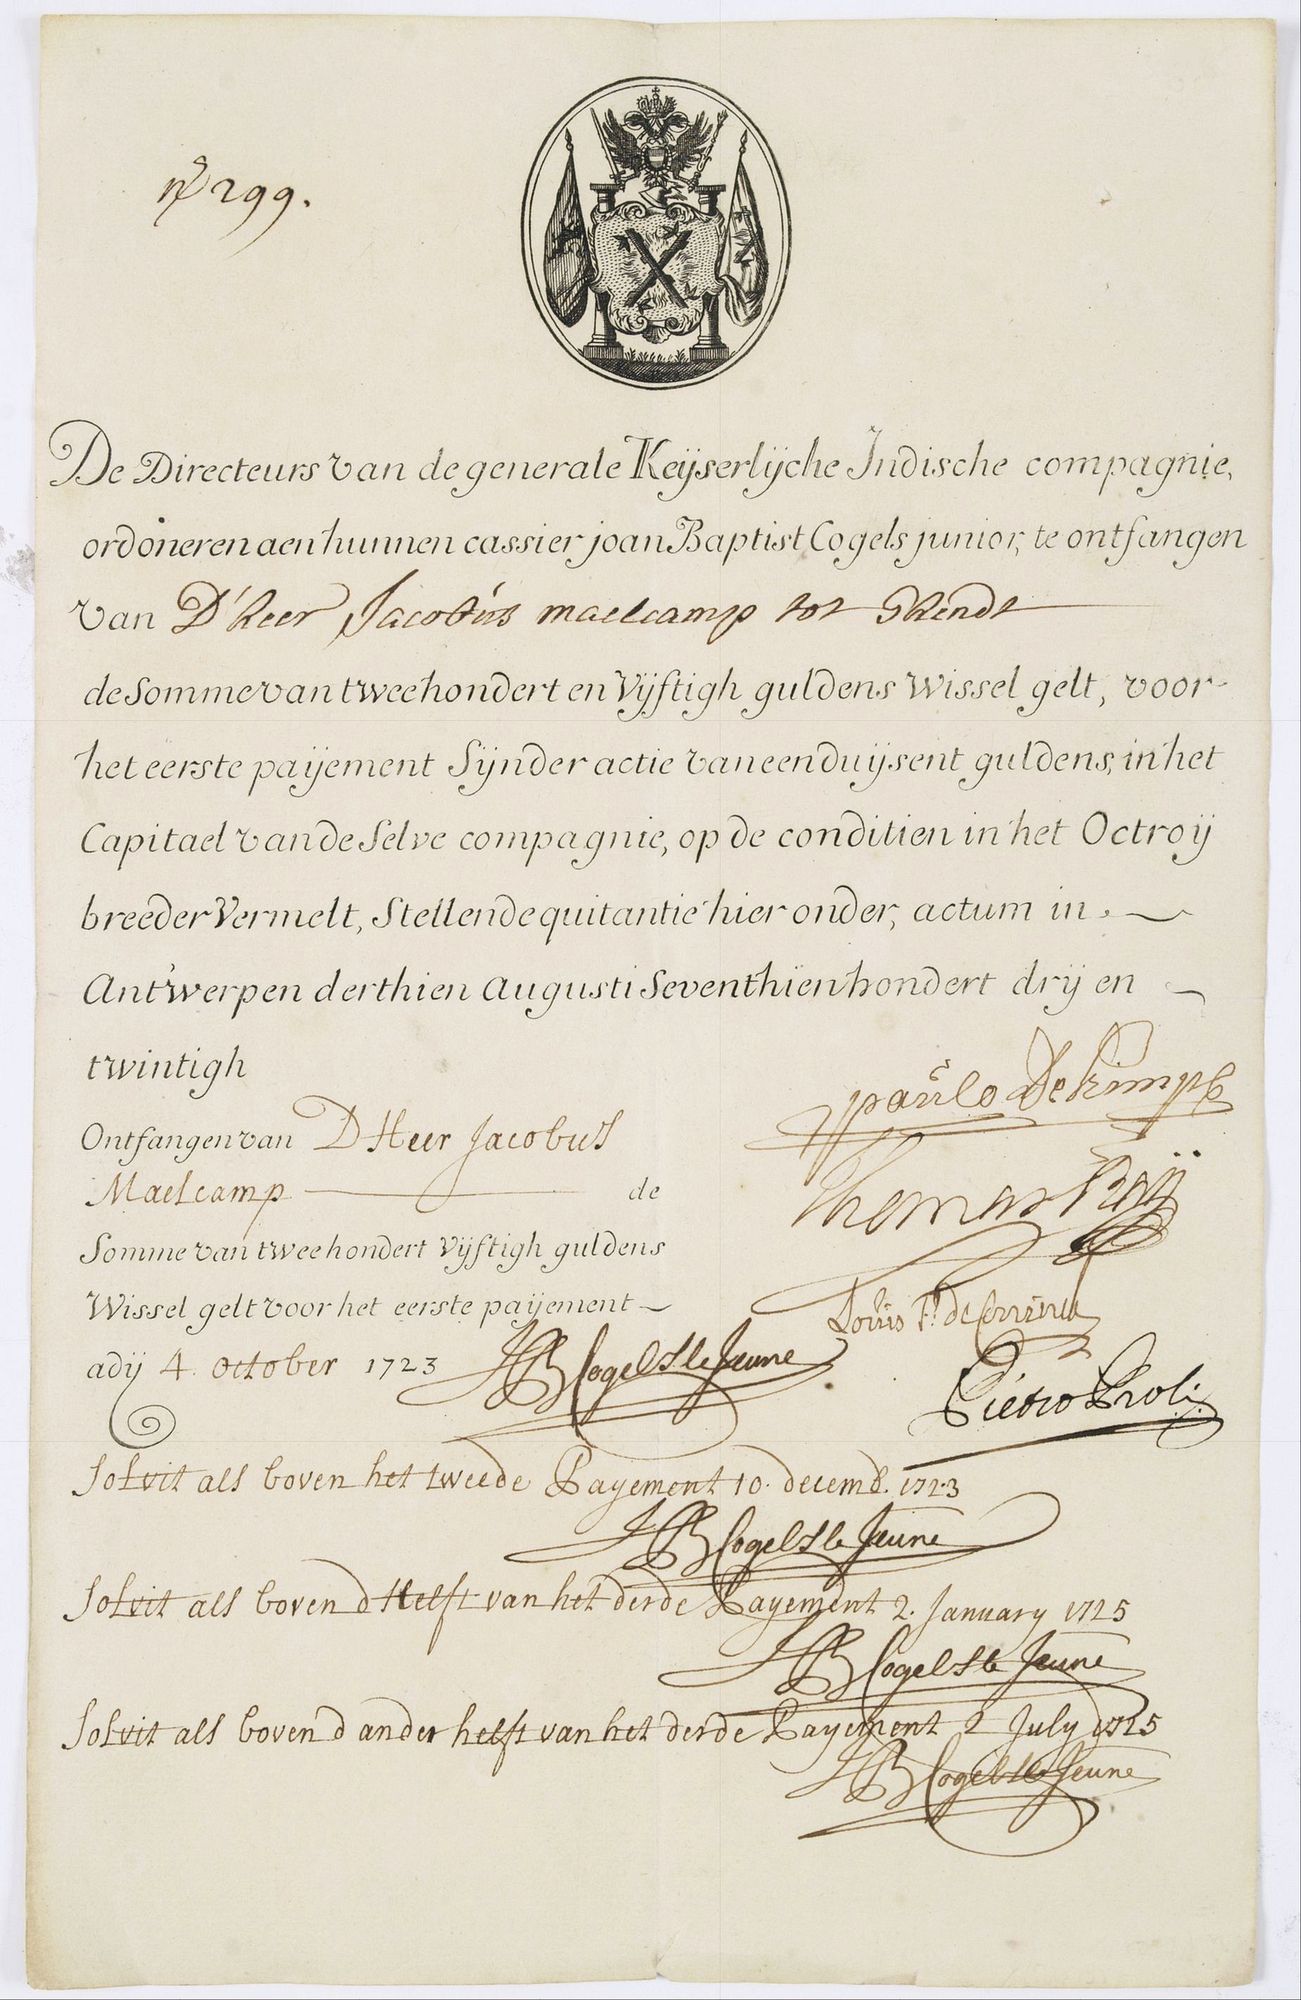 No 299.
De Directeurs van de generale Keijserlijche Indische compagnie,
ordoneren aen hunnen cassier joan Baptist Cogels junior, te ontfangen
van D'heer Jacobus maelcamp tot Ghendt
de Somme van tweehondert en Vijftigh guldens Wissel gelt, voor
het eerste paijement Sijnder actie van een duijsent guldens, in het
Capitael van de Selve compagnie, op de conditien in het Octroij
breeder Vermelt, Stellende quitantie hier onder, actum in
Antwerpen derthien Augusti Seventhien hondert drij en
twintigh
paulo De Kimpe
Ontfangen van D Heer Jacobus
Thomas Raij
Maelcamp de
Somme van tweehondert Vijftigh guldens
Wissel gelt voor het eerste paijement
Louis F. de Coninck
adij 4. October 1723 JB Cogels le Jeune
Pietro Proli
Solvit als boven het tweede Payement 10. decemb. 1723
JB Cogels le Jeune
Solvit als boven d Helft van het derde Payement 2. January 1725
JB Cogels le Jeune
Solvit als boven d ander helft van het derde Payement 2 July 1725
JB Cogels le Jeune